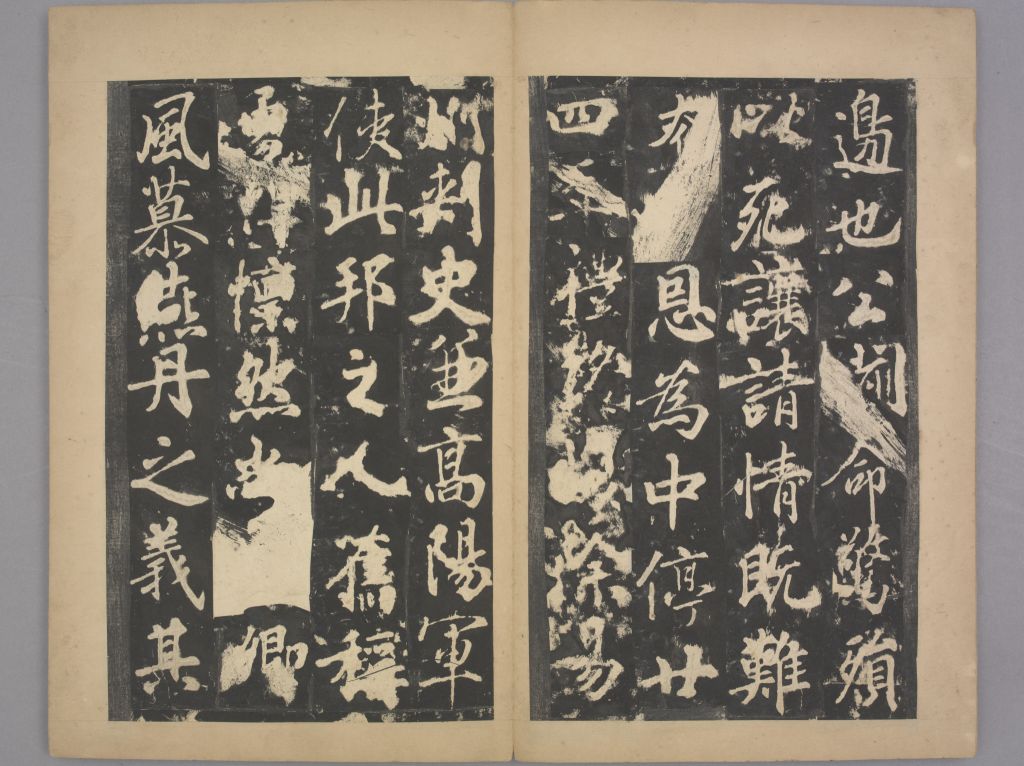 邊也公聞命驚殞
以死讓請情既難
恩為中停廿
四年禮除易
州刺史兼高陽軍
使此邦之人舊穆
懍然尚卿
風慕燕丹之義其